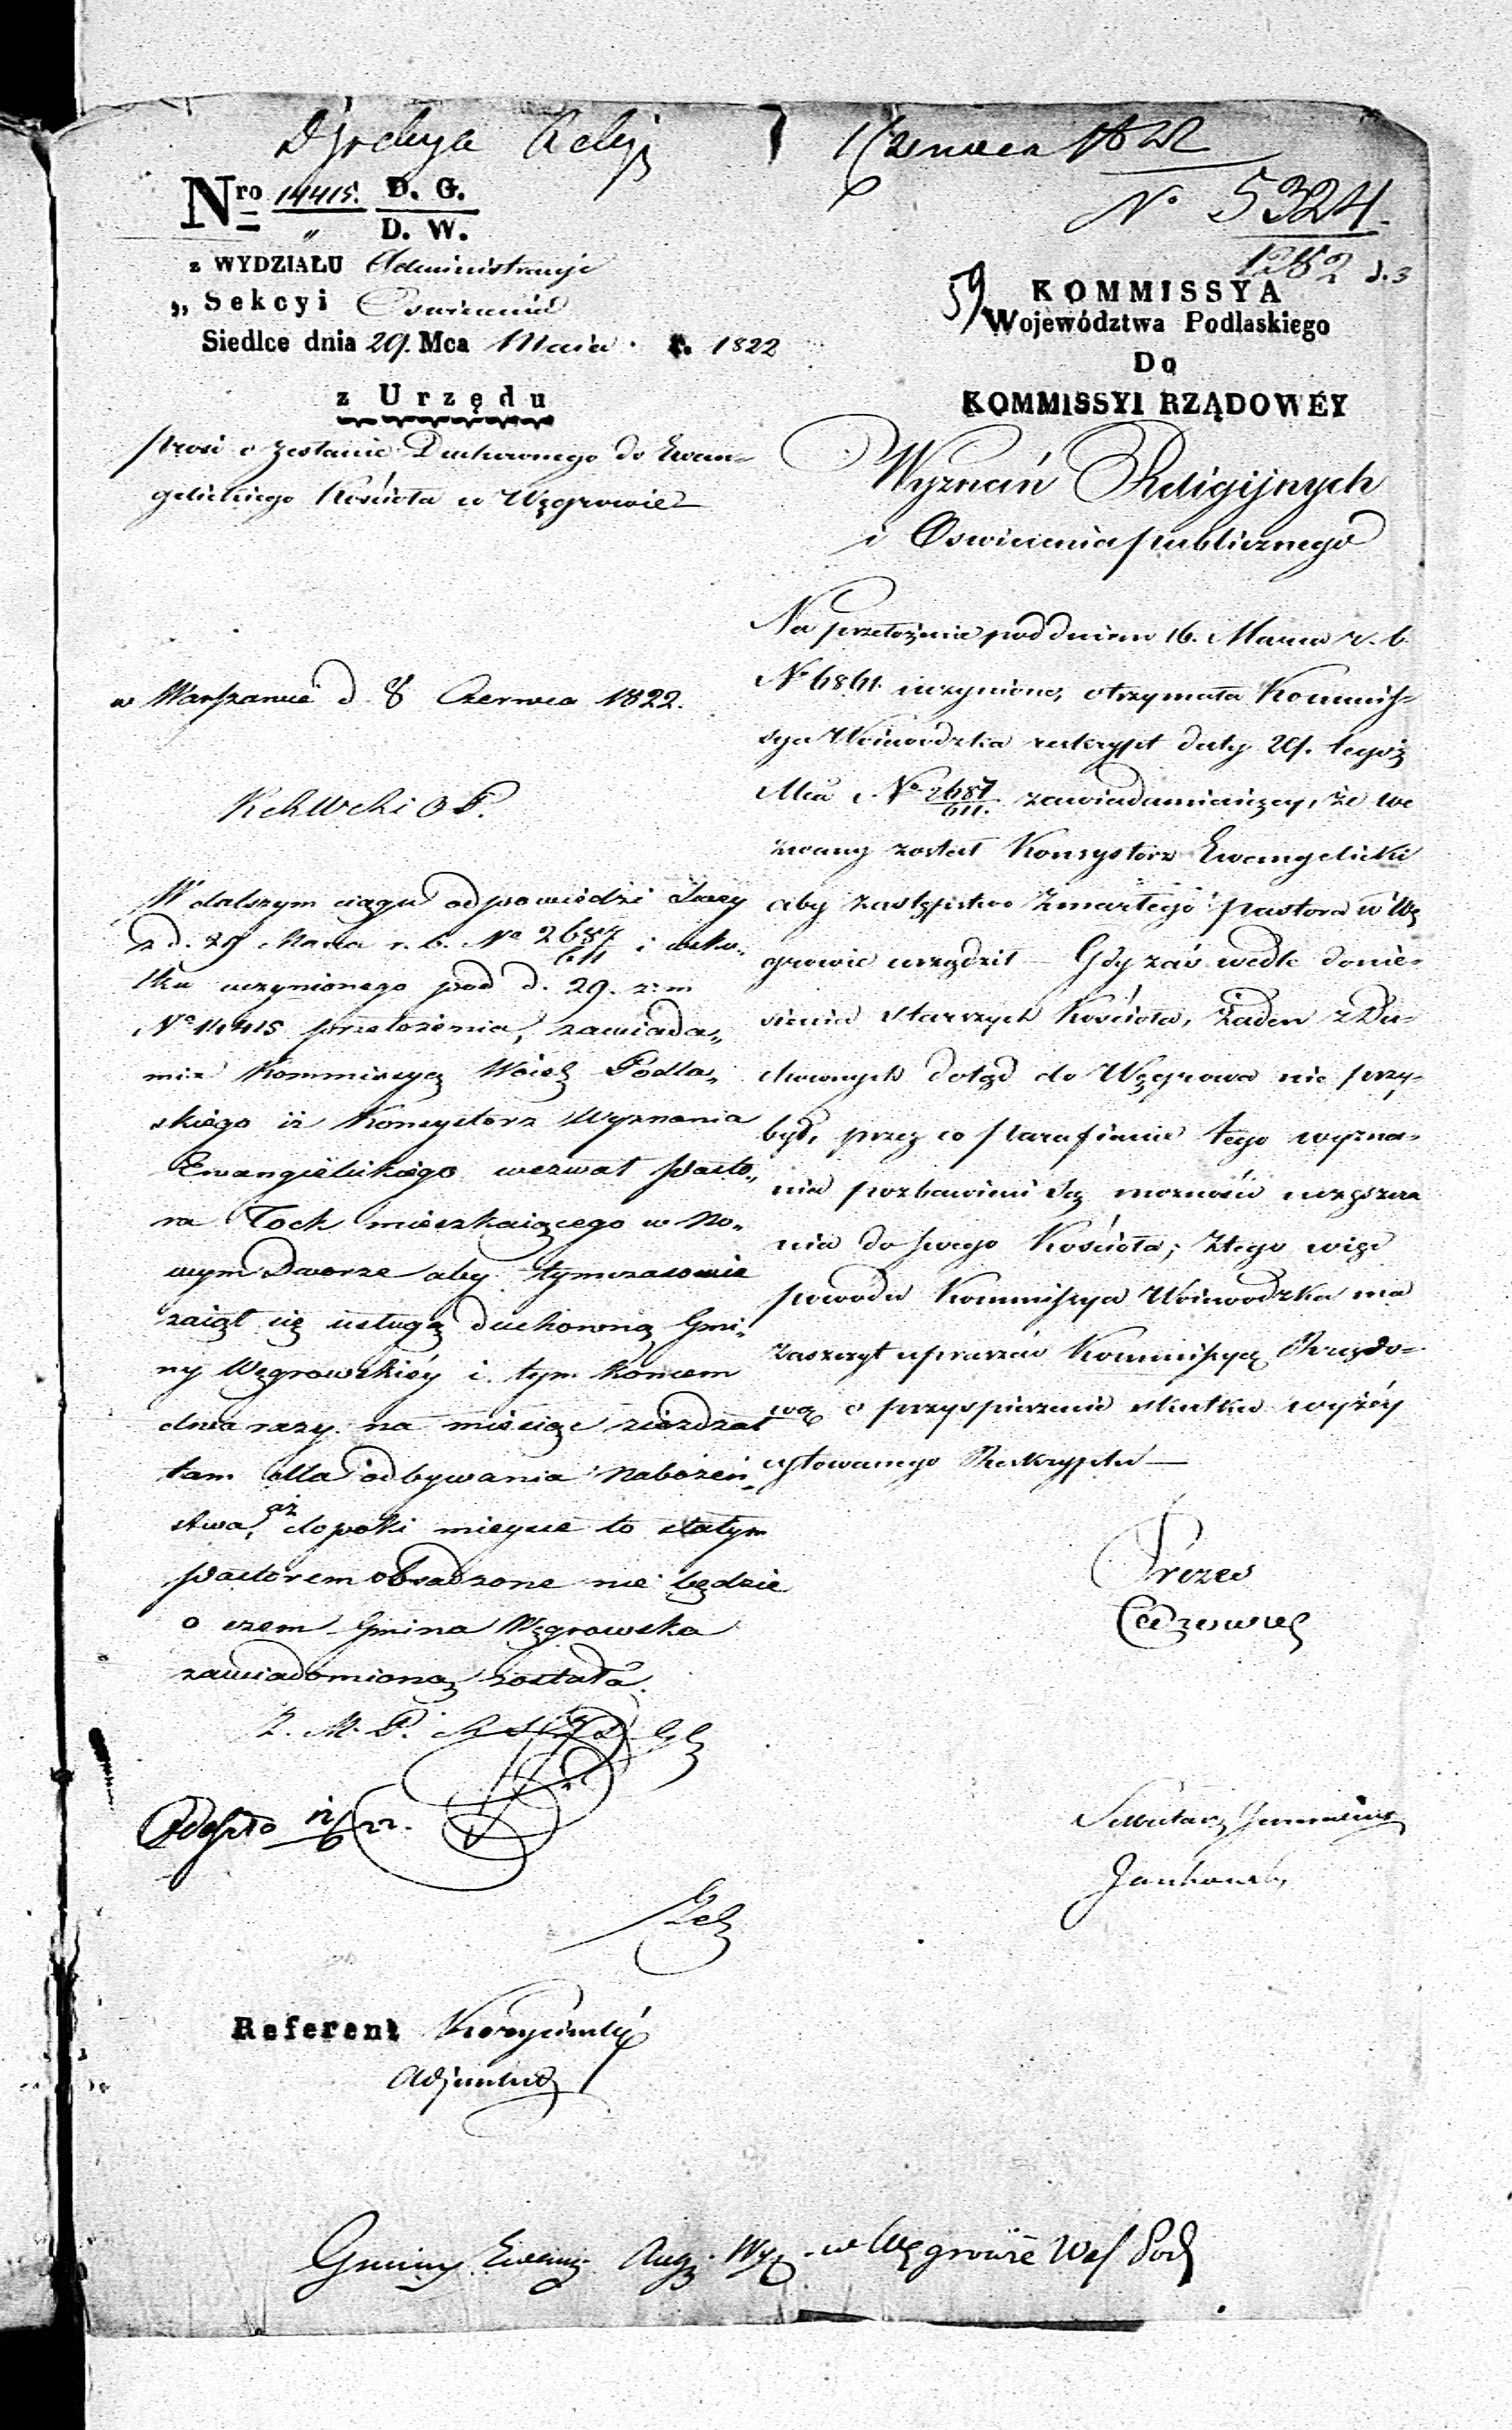 Dyrekcya Religi
1 Czerwca 1822
Nro 14415. D. G.
" D. W.
z WYDZIAŁU Administracyi
„ Sekcyi Oswiecenia
Siedlce dnia 29. Mca Maia r. 1822
z Urzędu
prosi o zesłanie Duchownego do Ewan-
gelickiego Kościoła w Węgrowie
No 5324
1282 d. 3
59
KOMMISSYA
Województwa Podlaskiego
Do
KOMMISSYI RZĄDOWEY
Wyznań Religijnych
i Oswiecenia publicznego
Na przełożenie pod dniem 16. Marca r. b.
No 6861. uczynione, otrzymała Kommis-
sya Woiewodzka reskrypt daty 29. tegoż
Mca No 2687/611. zawiadamiaiący, że we
zwany został Konsystorz Ewangelicki
aby zastępstwo zmarłego pastora w Wę
growie urządził — Gdy zaś wedle donie-
sienia starszych Kościoła, żaden z Du-
chownych dotąd do Węgrowa nie przy-
był, przez co parafianie tego wyzna-
nia pozbawieni są możności uczęszcza
nia do swego Kościoła; z tego więc
powodu Kommissya Woiewodzka ma
zaszczyt upraszać Kommissyą Rządo-
wą o przyspieszenie skutku wyżéy
cytowanego Reskryptu —
Prezes
Sekretarz Jeneralny
Jankowski
w Warszawie d. 8 Czerwca 1822.
W dalszym ciągu odpowiedzi swey
z d. 29 Marca r. b. No 2687/611 i w sku-
tku uczynionego pod d. 29. z. m
No 14415 przełożenia, zawiada„
mia Kommissyą Woiewództwa Podla„
skiego iż Konsystorz Wyznania
Ewangielickiego wezwał Pasto„
ra Tock mieszkaiącego w No„
wym Dworze aby tymczasowie
zaiął się usługą duchowną Gmi„
ny Węgrowskiéy i tym końcem
dwa razy na miesiąc zieżdżał
tam dla odbywania nabożeń„
stwa, aż dopóki mieysce to stałym
pastorem obsadzone nie będzie
o czem Gmina Węgrowska
zawiadomioną została.
Z. M. P.
Odeszło 12/6 22.
Referent
Adjunkt
Gminy Ewang. Aug. Wyz. w Węgrowie Wof Pod